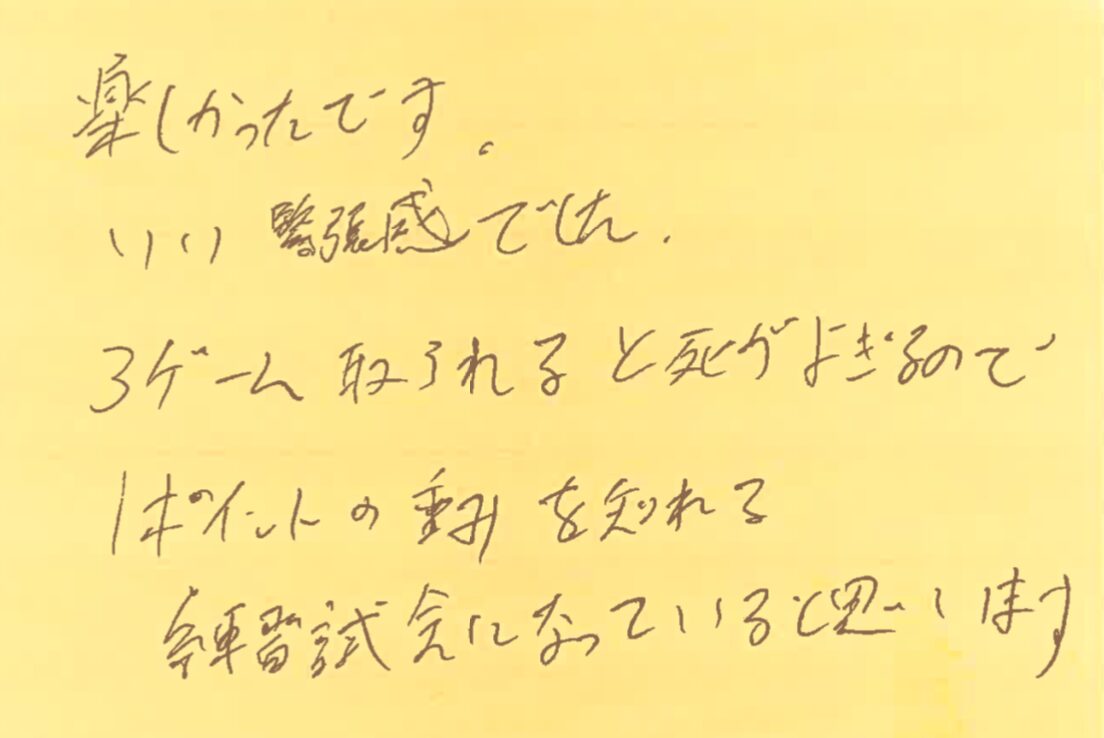 楽しかったです。
いい緊張感でした.
3ゲーム取られると死がよぎるので
1ポイントの重みを知れる
練習試合になっていると思います